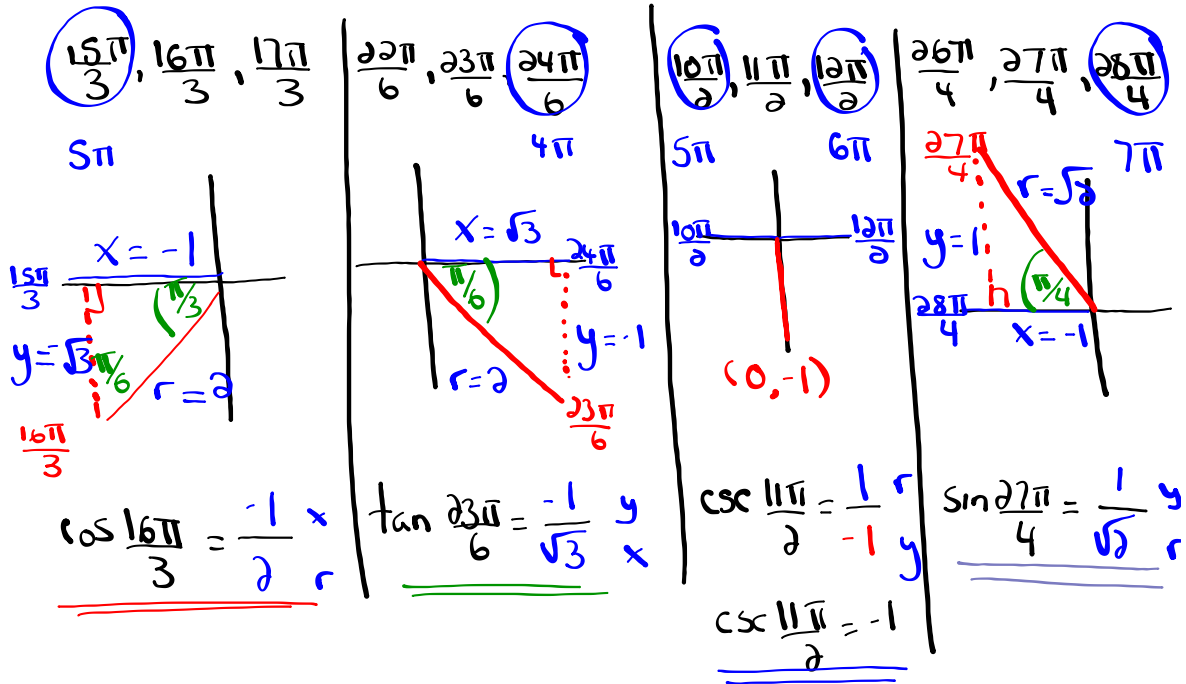 15π/3, 16π/3, 17π/3
5π
x = -1
15π/3
π/3
y = -√3
π/6
r = 2
16π/3
cos 16π/3 = -1/2 x r
22π/6, 23π/6, 24π/6
4π
x = √3
24π/6
π/6
y = -1
r = 2
23π/6
tan 23π/6 = -1/√3 y x
10π/2, 11π/2, 12π/2
5π 6π
10π/2 12π/2
(0, -1)
csc 11π/2 = 1/-1 r y
csc 11π/2 = -1
26π/4, 27π/4, 28π/4
27π/4 7π
r = √2
y = 1
π/4
28π/4
x = -1
sin 27π/4 = 1/√2 y r